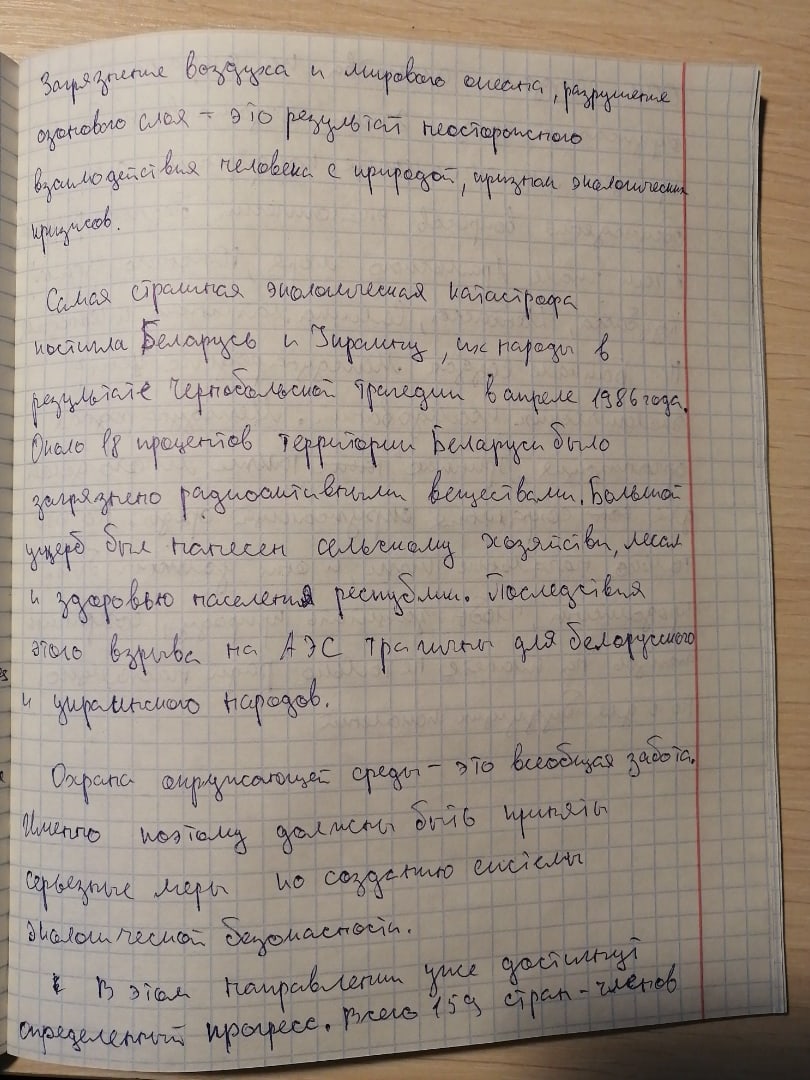 Загрязнение воздуха и мирового океана, разрушение
озонового слоя – это результат неосторожного
взаимодействия человека с природой, признак экологических
кризисов.
Самая страшная экологическая катастрофа
постигла Беларусь и Украину, их народы в
результате Чернобольской трагедии в апреле 1986 года.
Около 18 процентов территории Беларуси было
загрязнено радиоактивными веществами. Большой
ущерб был нанесен сельскому хозяйству, лесам
и здоровью населения республики. Последствия
этого взрыва на АЭС трагичны для белорусского
и украинского народов.
Охрана окружающей среды – это всеобщая забота.
Именно поэтому должны быть приняты
серьезные меры по созданию системы
экологической безопасности.
В этом направлении уже достигнут
определенный прогресс. Всего 159 стран-членов